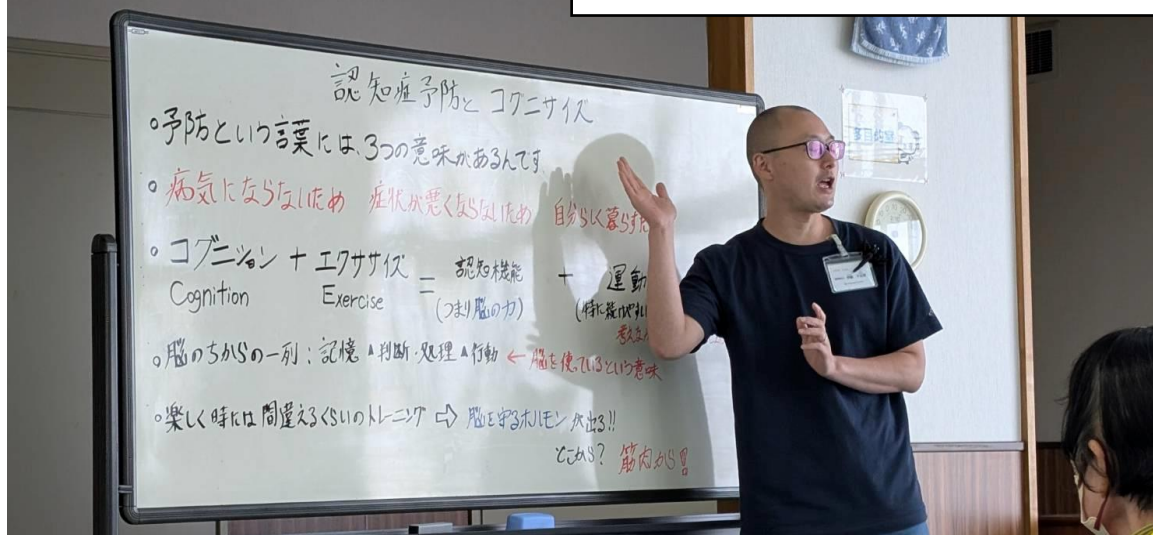 認知症予防と コグニサイズ
○予防という言葉には、3つの意味があるんです
○病気にならないため 症状が悪くならないため 自分らしく暮らすた
○コグニション + エクササイズ = 認知機能 + 運動
Cognition Exercise (つまり脳の力) (特に
考え
○脳のちからの一列:記憶▲判断・処理▲行動 ← 脳を使っているという意味
○楽しく時には間違えるくらいのトレーニング ⇨ 脳を守るホルモンが出る!!
どこから? 筋肉から!!